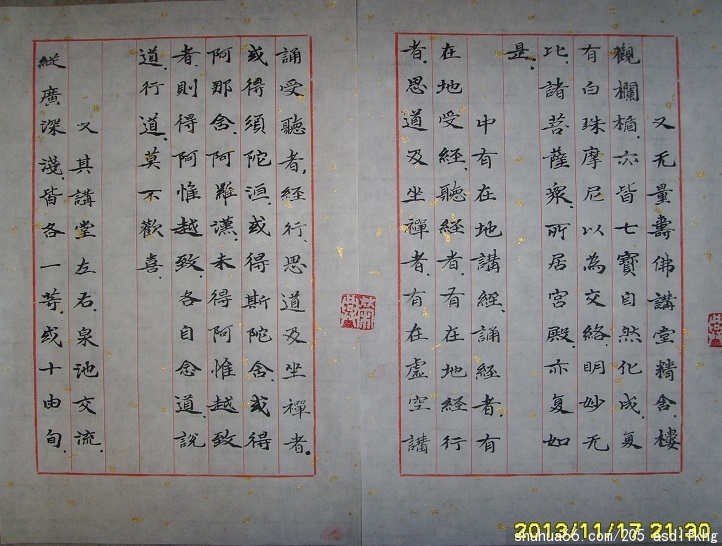 又无量壽佛講堂精舍.樓
觀欄楯.亦皆七寶自然化成.复
有白珠摩尼以為交絡.明妙无
比.諸菩薩衆.所居宮殿.亦复如
是.
中有在地講經.誦經者.有
在地受經.聽經者.有在地經行
者.思道及坐禪者.有在虛空講
誦受聽者,經行.思道及坐禪者.
或得須陀洹.或得斯陀含.或得
阿那含.阿羅漢.未得阿惟越致
者.則得阿惟越致.各自念道.説
道.行道.莫不歡喜.
又其講堂左右.泉池交流.
縱廣深淺.皆各一等.或十由旬.
2013/11/17 21:30
shuhua66.com/205 asdfkhg